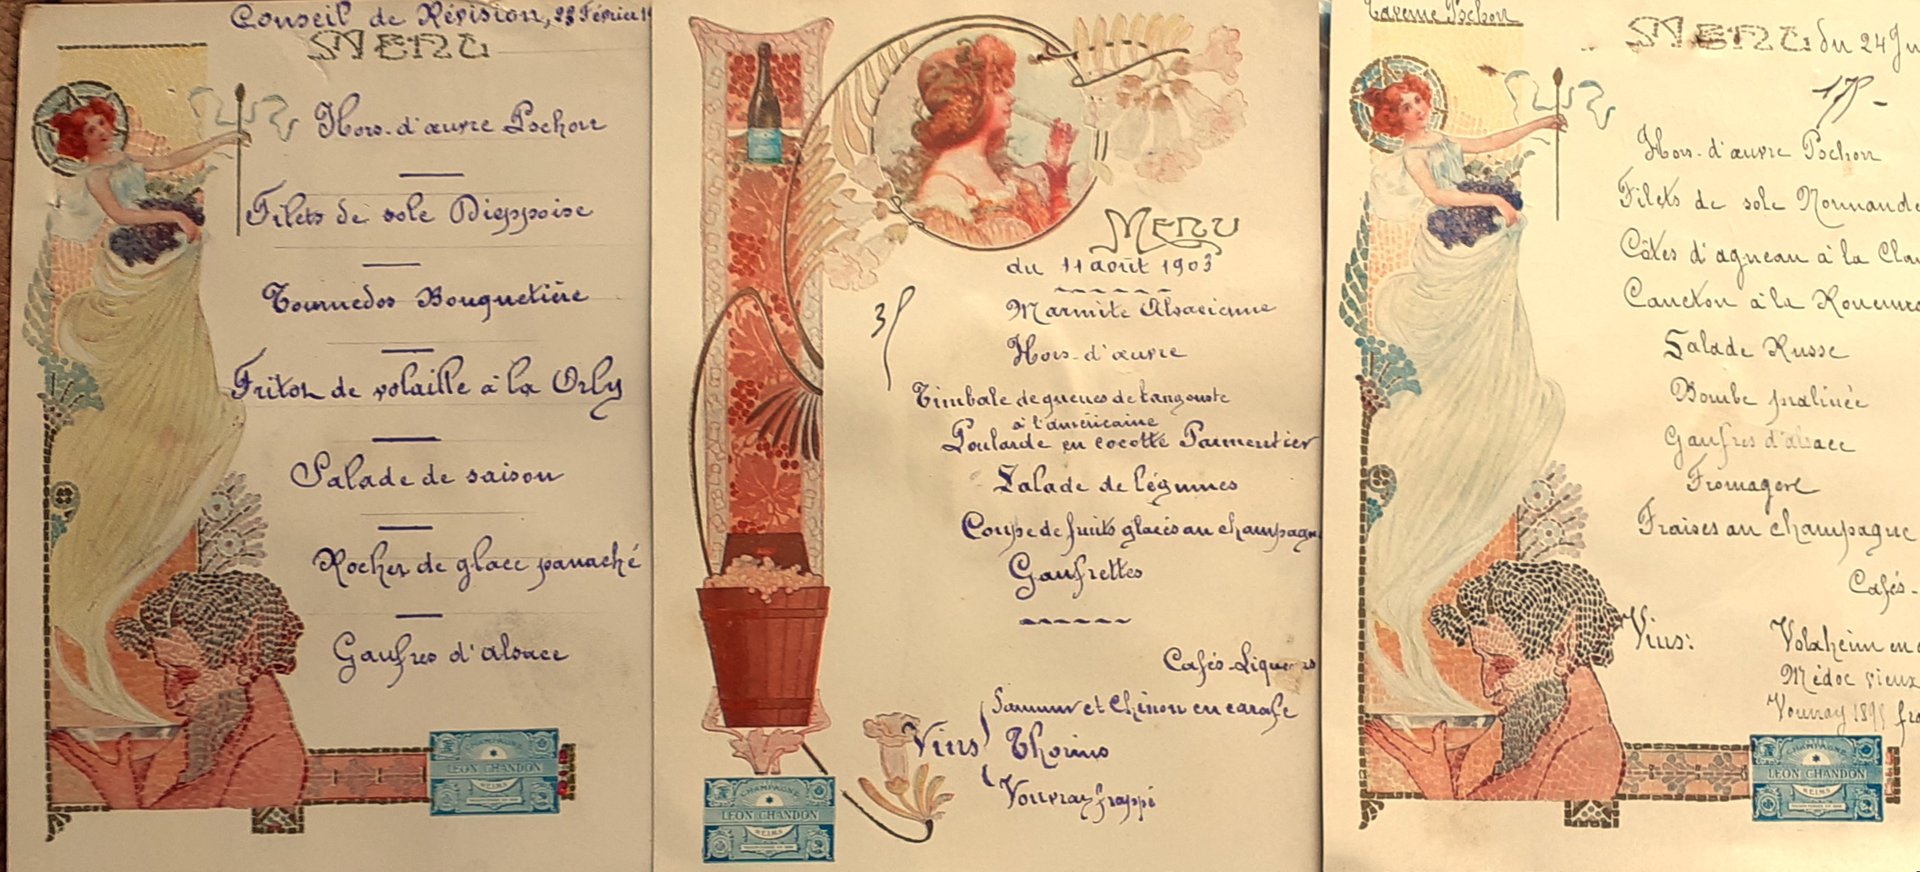 Conseil de Révision, 28 Février 19
MENU
Hors-d'œuvre Pschorr
Filets de sole Dieppoise
Tournedos Bouquetière
Fritot de volaille à la Orly
Salade de saison
Rocher de glace panaché
Gaufres d'alsace
CHAMPAGNE
LEON CHANDON
REIMS
MENU
du 11 août 1903
3f
Marmite Alsacienne
Hors-d'œuvre
Timbale de queues de langouste
à l'américaine
Poularde en cocotte Parmentier
Salade de légumes
Coupe de fruits glacés au champagn
Gaufrettes
Cafés-Liqueurs
Vins
Saumur et Chinon en carafe
Thorins
Vouvray frappé
CHAMPAGNE
LEON CHANDON
REIMS
Taverne Pschorr
MENU du 24 Ju
Hors-d'œuvre Pschorr
Filets de sole Normande
Côtes d'agneau à la Cla
Caneton à la Rouenna
Salade Russe
Bombe pralinée
Gaufres d'alsace
Fromagere
Fraises au champagne
Cafés-
Vins: Volxheim en
Médoc vieux
Vouvray fra
CHAMPAGNE
LEON CHANDON
REIMS